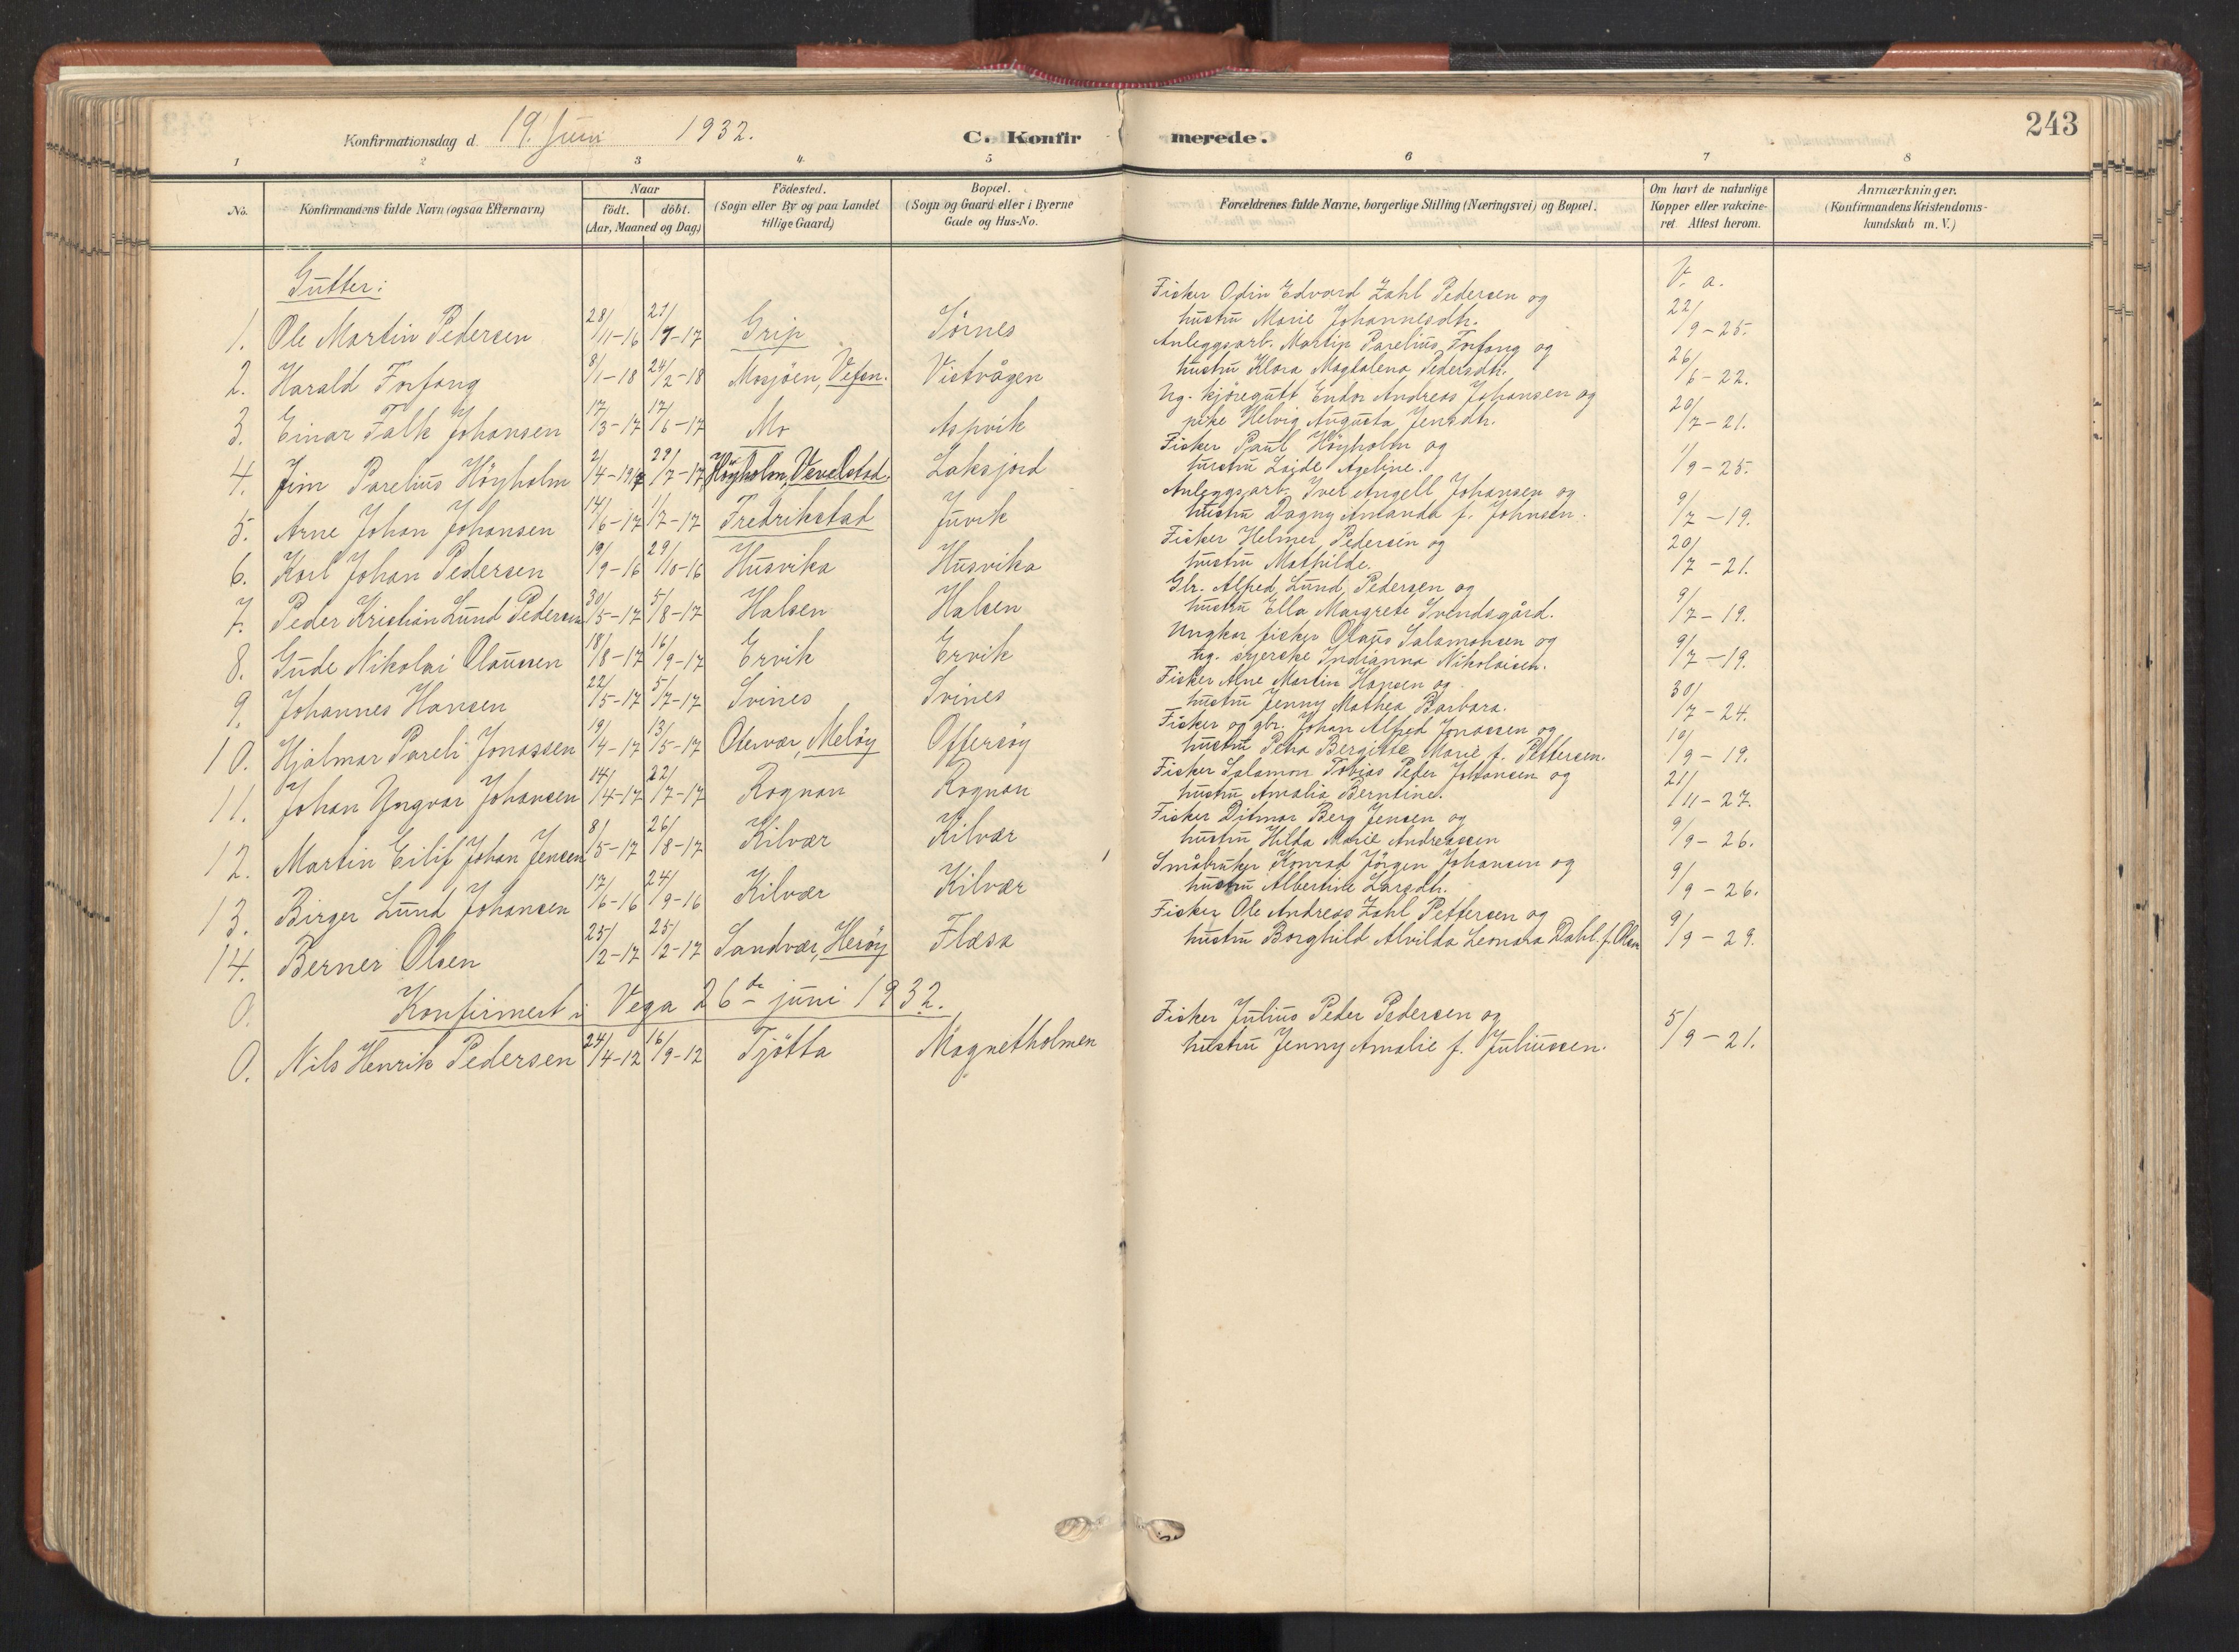 243
Konfirmationsdag d. 19. Juni 1932.
C. Konfirmerede.
1 2 3 4 5 6 7 8
No.
Konfirmandens fulde Navn (ogsaa Efternavn)
Naar
födt. döbt.
(Aar, Maaned og Dag)
Födested.
(Sogn eller By og paa Landet
tillige Gaard)
Bopæl.
(Sogn og Gaard eller i Byerne
Gade og Hus-No.
Forældrenes fulde Navne, borgerlige Stilling (Næringsvei) og Bopæl.
Om havt de naturlige
Kopper eller vakcine-
ret. Attest herom.
Anmærkninger.
(Konfirmandens Kristendoms-
kundskab m. V.)
Gutter:
V. a.
Fisker Odin Edvard Zahl Pedersen og
1. Ole Martin Pedersen 28/11-16 21/7-17 Grip Sörnes hustru Marie Johannesdtr. 22/9-25
Anleggsarb. Martin Parelius Forfang og
2. Harald Forfang 8/1-18 24/2-18 Mosjöen, Vefsn. Vistvågen hustru Klara Magdalena Pedersdtr. 26/6-22.
Ug. kjöregutt Endor Andreas Johansen og
3. Einar Falk Johansen 17/3-17 17/6-17 Mo Aspvik pike Helvig Augusta Jensdtr. 20/7-21.
Fisker Paul Höyholm og
4. Jim Parelius Höyholm 2/4-1917 29/7-17 Höyholm, Vevelstad. Laksjord hustru Ageline. 1/9-25.
Anleggsarb. Iver Angell Johansen og
5. Arne Johan Johansen 14/6-17 1/7-17 Fredrikstad Juvik hustru Dagny Amanda f. Johnsen. 9/7-19.
Fisker Helmer Pedersen og
6. Karl Johan Pedersen 19/9-16 29/10-16 Husvika Husvika hustru Mathilde. 20/7-21.
Gbr. Alfred Lund Pedersen og
7. Peder Kristian Lund Pedersen 30/5-17 5/8-17 Halsen Halsen hustru Ella Margrete Svendsgård. 9/7-19.
Ungkar fisker Olaus Salamonsen og
8. Gude Nikolai Olaussen 18/8-17 16/9-17 Ervik Ervik ug. syerske Indianna Nikolaisen. 9/7-19.
Fisker Arne Martin Hansen og
9. Johannes Hansen 22/5-17 5/7-17 Svines Svines hustru Jenny Mathea Barbara. 30/7-24.
Fisker og gbr. Johan Alfred Jonassen og
10. Hjalmar Pareli Jonassen 19/4-17 13/5-17 Otervær, Melöy Offersöy hustru Petra Bergitte Marie f. Pettersen. 10/9-19.
Fisker Salamon Tobias Peder Johansen og
11. Johan Yngvar Johansen 14/4-17 22/7-17 Rognan Rognan hustru Amalia Berntine. 21/11-27.
Fisker Ditmar Berg Jensen og
12. Martin Eilif Johan Jensen 8/5-17 26/8-17 Kilvær Kilvær hustru Hilda Marie Andreassen 9/9-26.
Småbruker Konrad Jörgen Johansen og
13. Birger Lund Johansen 17/6-16 24/9-16 Kilvær Kilvær hustru Albertine Larsdtr. 9/9-26.
Fisker Ole Andreas Zahl Pettersen og
14. Berner Olsen 25/2-17 25/2-17 Sandvær, Heröy Flæsa hustru Borghild Alvilda Leonora Dahl. f. Olsen 9/9-29.
0. Konfirmert i Vega 26de juni 1932.
Fisker Julius Peder Pedersen og
0. Nils Henrik Pedersen 24/4-12 16/9-12 Tjötta Magnetholmen hustru Jenny Amalie f. Juliussen. 5/9-21.